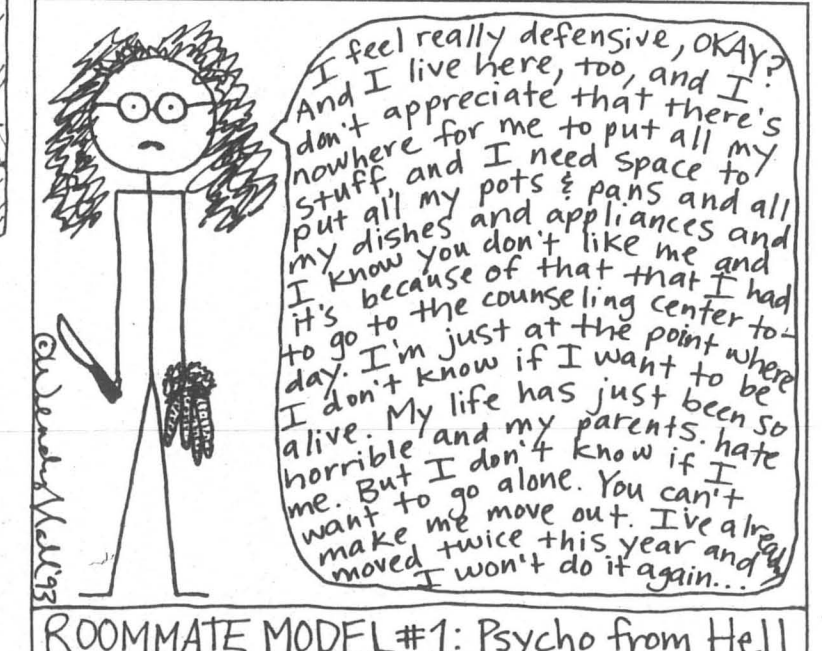 I feel really defensive, OKAY?
And I live here, too, and I
don't appreciate that there's
nowhere for me to put all my
stuff, and I need space to
put all my pots & pans and all
my dishes and appliances and
I know you don't like me and
it's because of that that I had
to go to the counseling center to-
day. I'm just at the point where
I don't know if I want to be
alive. My life has just been so
horrible and my parents hate
me. But I don't know if I
want to go alone. You can't
make me move out. I've already
moved twice this year and
I won't do it again...
©Wendy Hall '93
ROOMMATE MODEL #1: Psycho from Hell